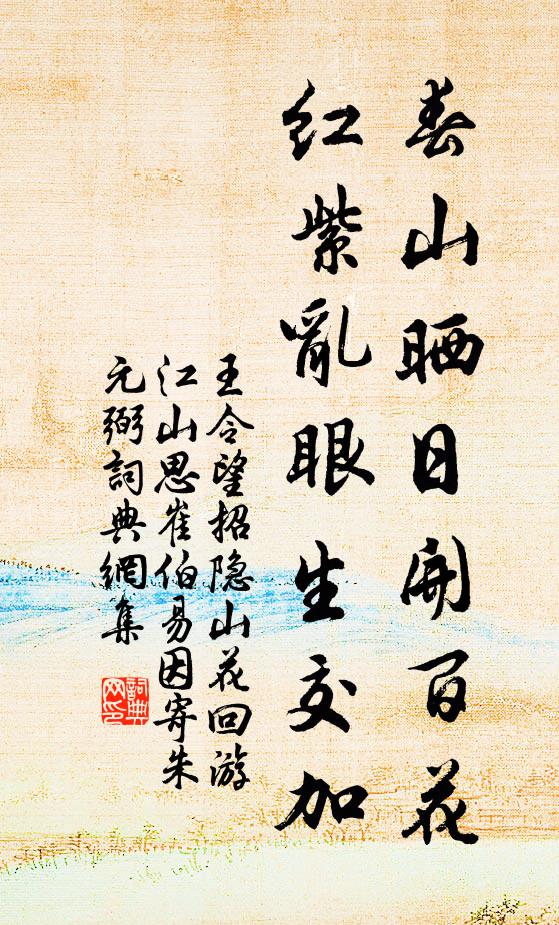 春山晒日開百花
紅紫亂眼生交加
王令望招隐山花回游
江山思崔伯易因寄朱
元弼詞典網集
詞典
网印